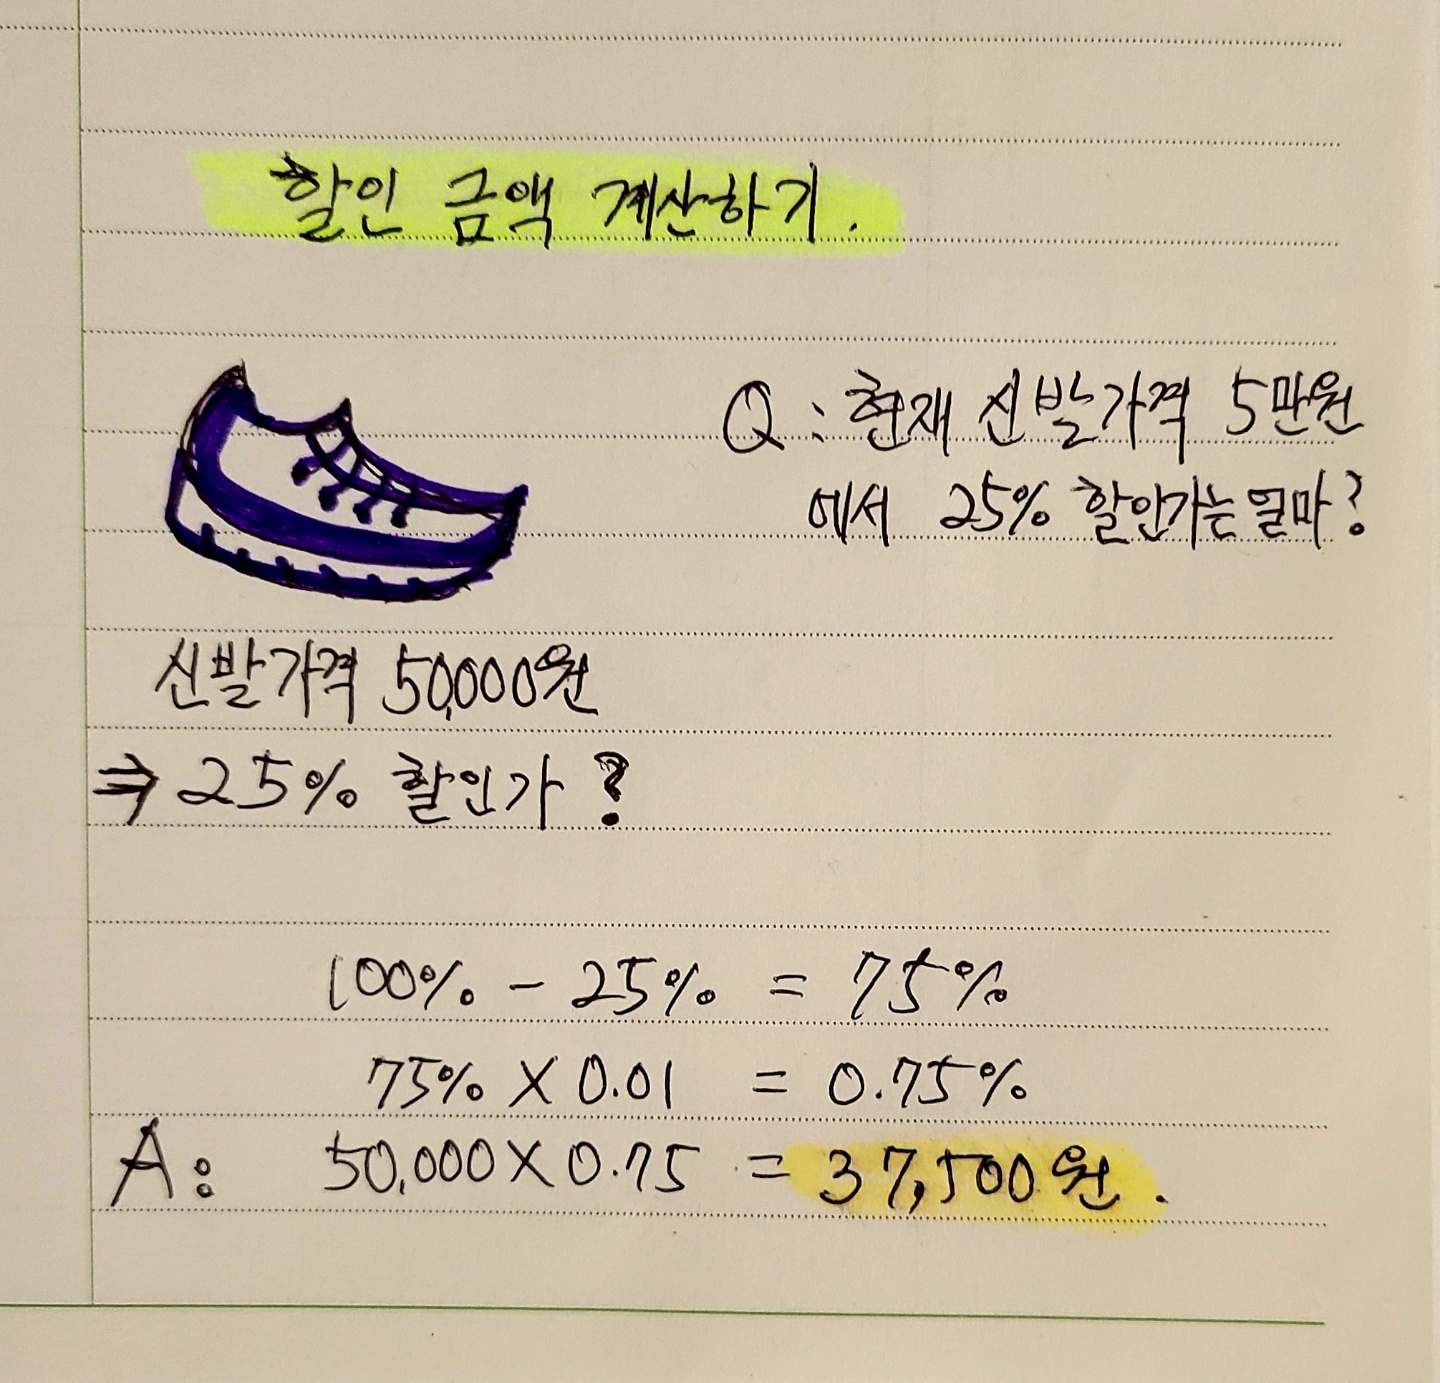 할인 금액 계산하기.
Q : 현재 신발가격 5만원
에서 25% 할인가는 얼마?
신발가격 50,000원
⇒ 25% 할인가?
100% - 25% = 75%
75% X 0.01 = 0.75%
A: 50,000 X 0.75 = 37,500원.